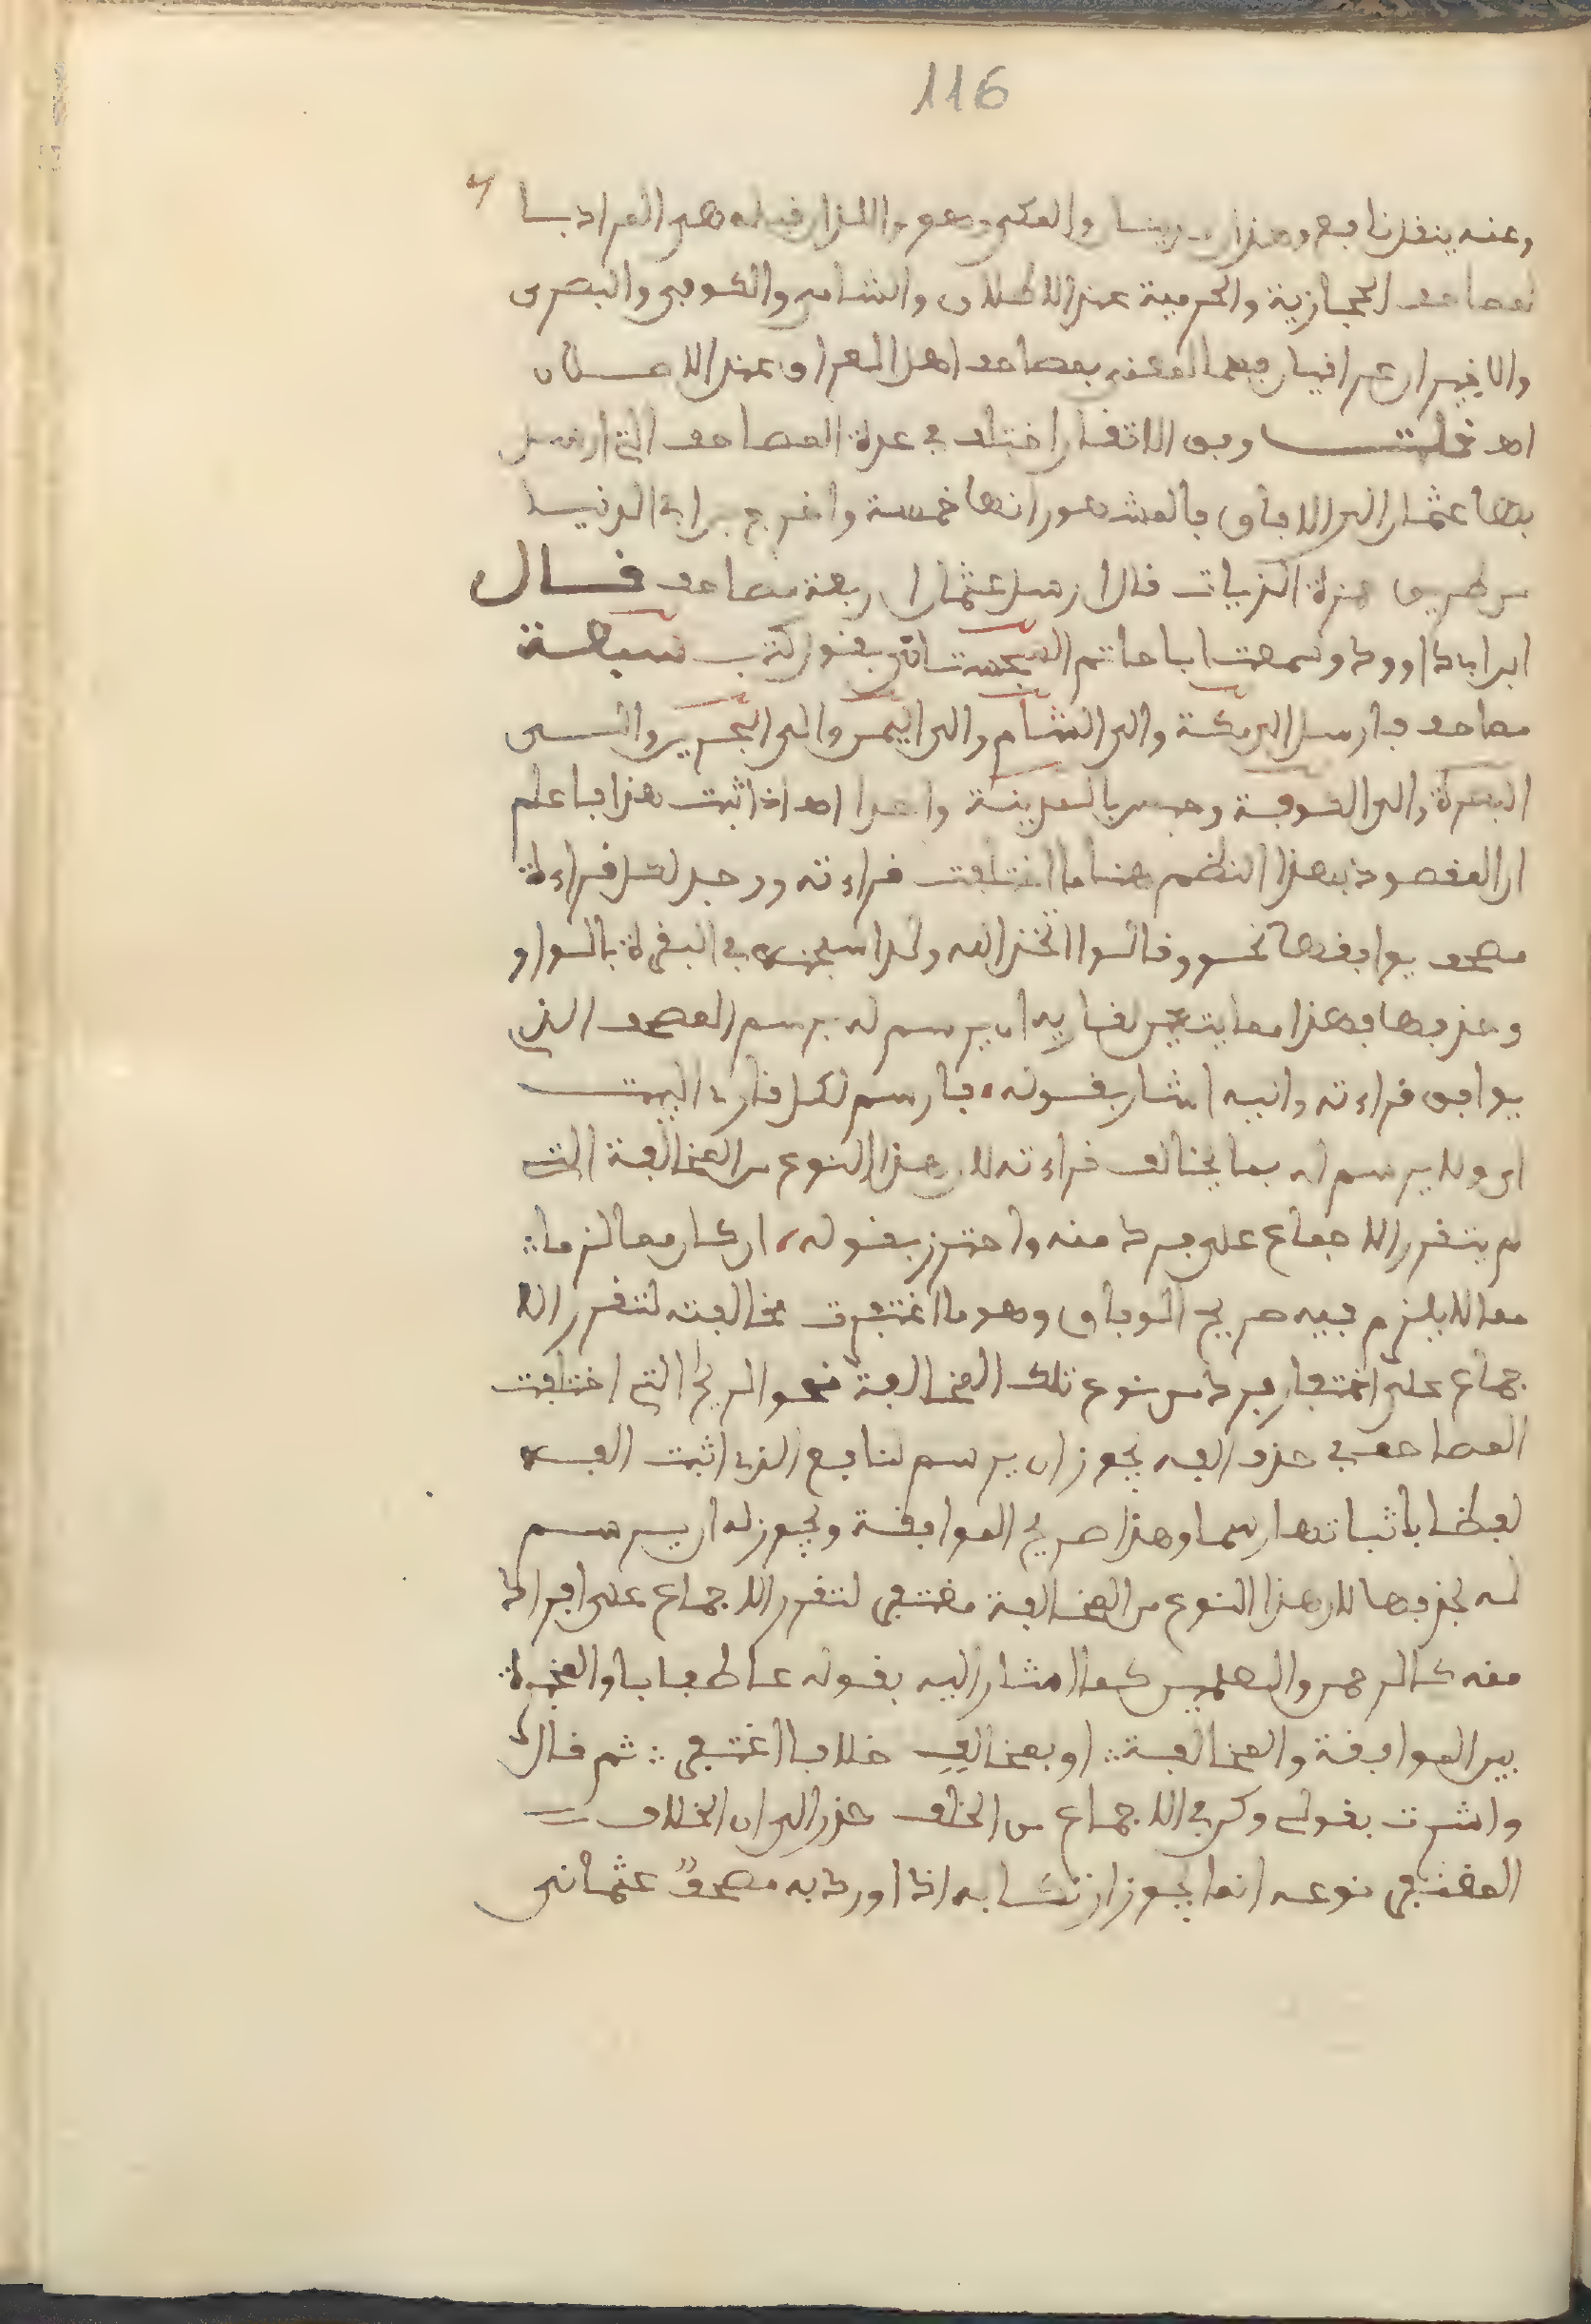 116
وعنه ينقل نافع وهذان مدنيان والمكي وهو واللذان قبله هي المراد با
لمصاحف الحجازية والحرمية عند الاطلاق والشامي والكوفي والبصري
والاخيران عراقيان وهما المعني بمصاحف اهل العراق عند الاطلاق
اهـ قلت وفي الاتقان اختلف في عدة المصاحف التي ارسل
بها عثمان الى الافاق فالمشهور انها خمسة واخرج ابن ابي
من طريق حمزة الزيات قال ارسل عثمان اربعة مصاحف قال
ابن ابي داوود وسمعت ابا حاتم السجستاني يقول كتب سبعة
مصاحف فارسل الى مكة والى الشام والى اليمن والى البحرين والى
البصرة والى الكوفة وحبس بالمدينة واحدا اهـ اذا ثبت هذا فاعلم
ان المقصود بهذا النظم هنا ما اختلفت قراءته ووجد لكل قراءة
مصحف يوافقها نحو وقالوا اتخذ الله ولدا سبحنه في البقرة بالواو
وحذفها فهذا مما يتعين لقاريه ان يرسم له برسم المصحف الذي
يوافق قراءته واليه اشار بقوله، فارسم لكل قارئ البيت
اي ولا يرسم له بما يخالف قراءته لان هذا النوع من المخالفة التي
لم يتقرر الاجماع على فرد منه واحترز بقوله، ان كان مما لزما ∴
مما لا يلزم فيه صريح الوفاق وهو ما اغتفرت مخالفته لتقرر الا
جماع على اغتفار فرد من نوع تلك المخالفة نحو الريح التي اختلفت
المصاحف في حذف الفه يجوز ان يرسم لنافع الذي اثبت الفه
لفظا باثباتها رسما وهذا صريح الموافقة ويجوز له ان يرسم
له بحذفها لان هذا النوع من المخالفة مغتفر لتقرر الاجماع على افراد
منه كالرحمن والعلمين كما المشار اليه بقوله عاطفا باو المخيرة
بين الموافقة والمخالفة ∴ او بمخالف خلافا اغتفر ∴ ثم قال
واشرت بقولي وكن في الاجماع من الخلف حذر الى ان الخلاف
المغتفر نوعه انما يجوز ارتكابه اذا ورد به مصحف عثماني